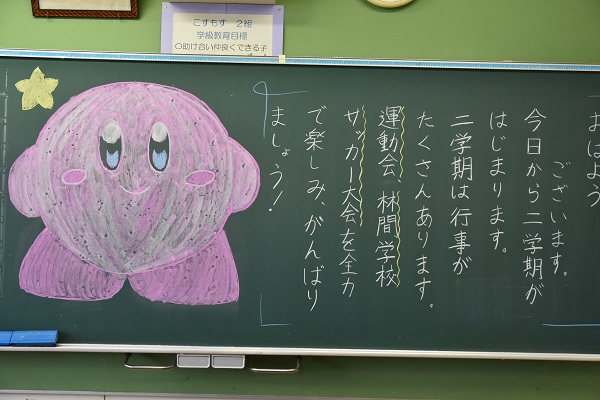 こすもす 2組
学級教育目標
〇助け合い仲良くできる子
おはよう
ございます。
今日から二学期が
はじまります。
二学期は行事が
たくさんあります。
運動会、林間学校
サッカー大会を全力
で楽しみ、がんばり
ましょう!